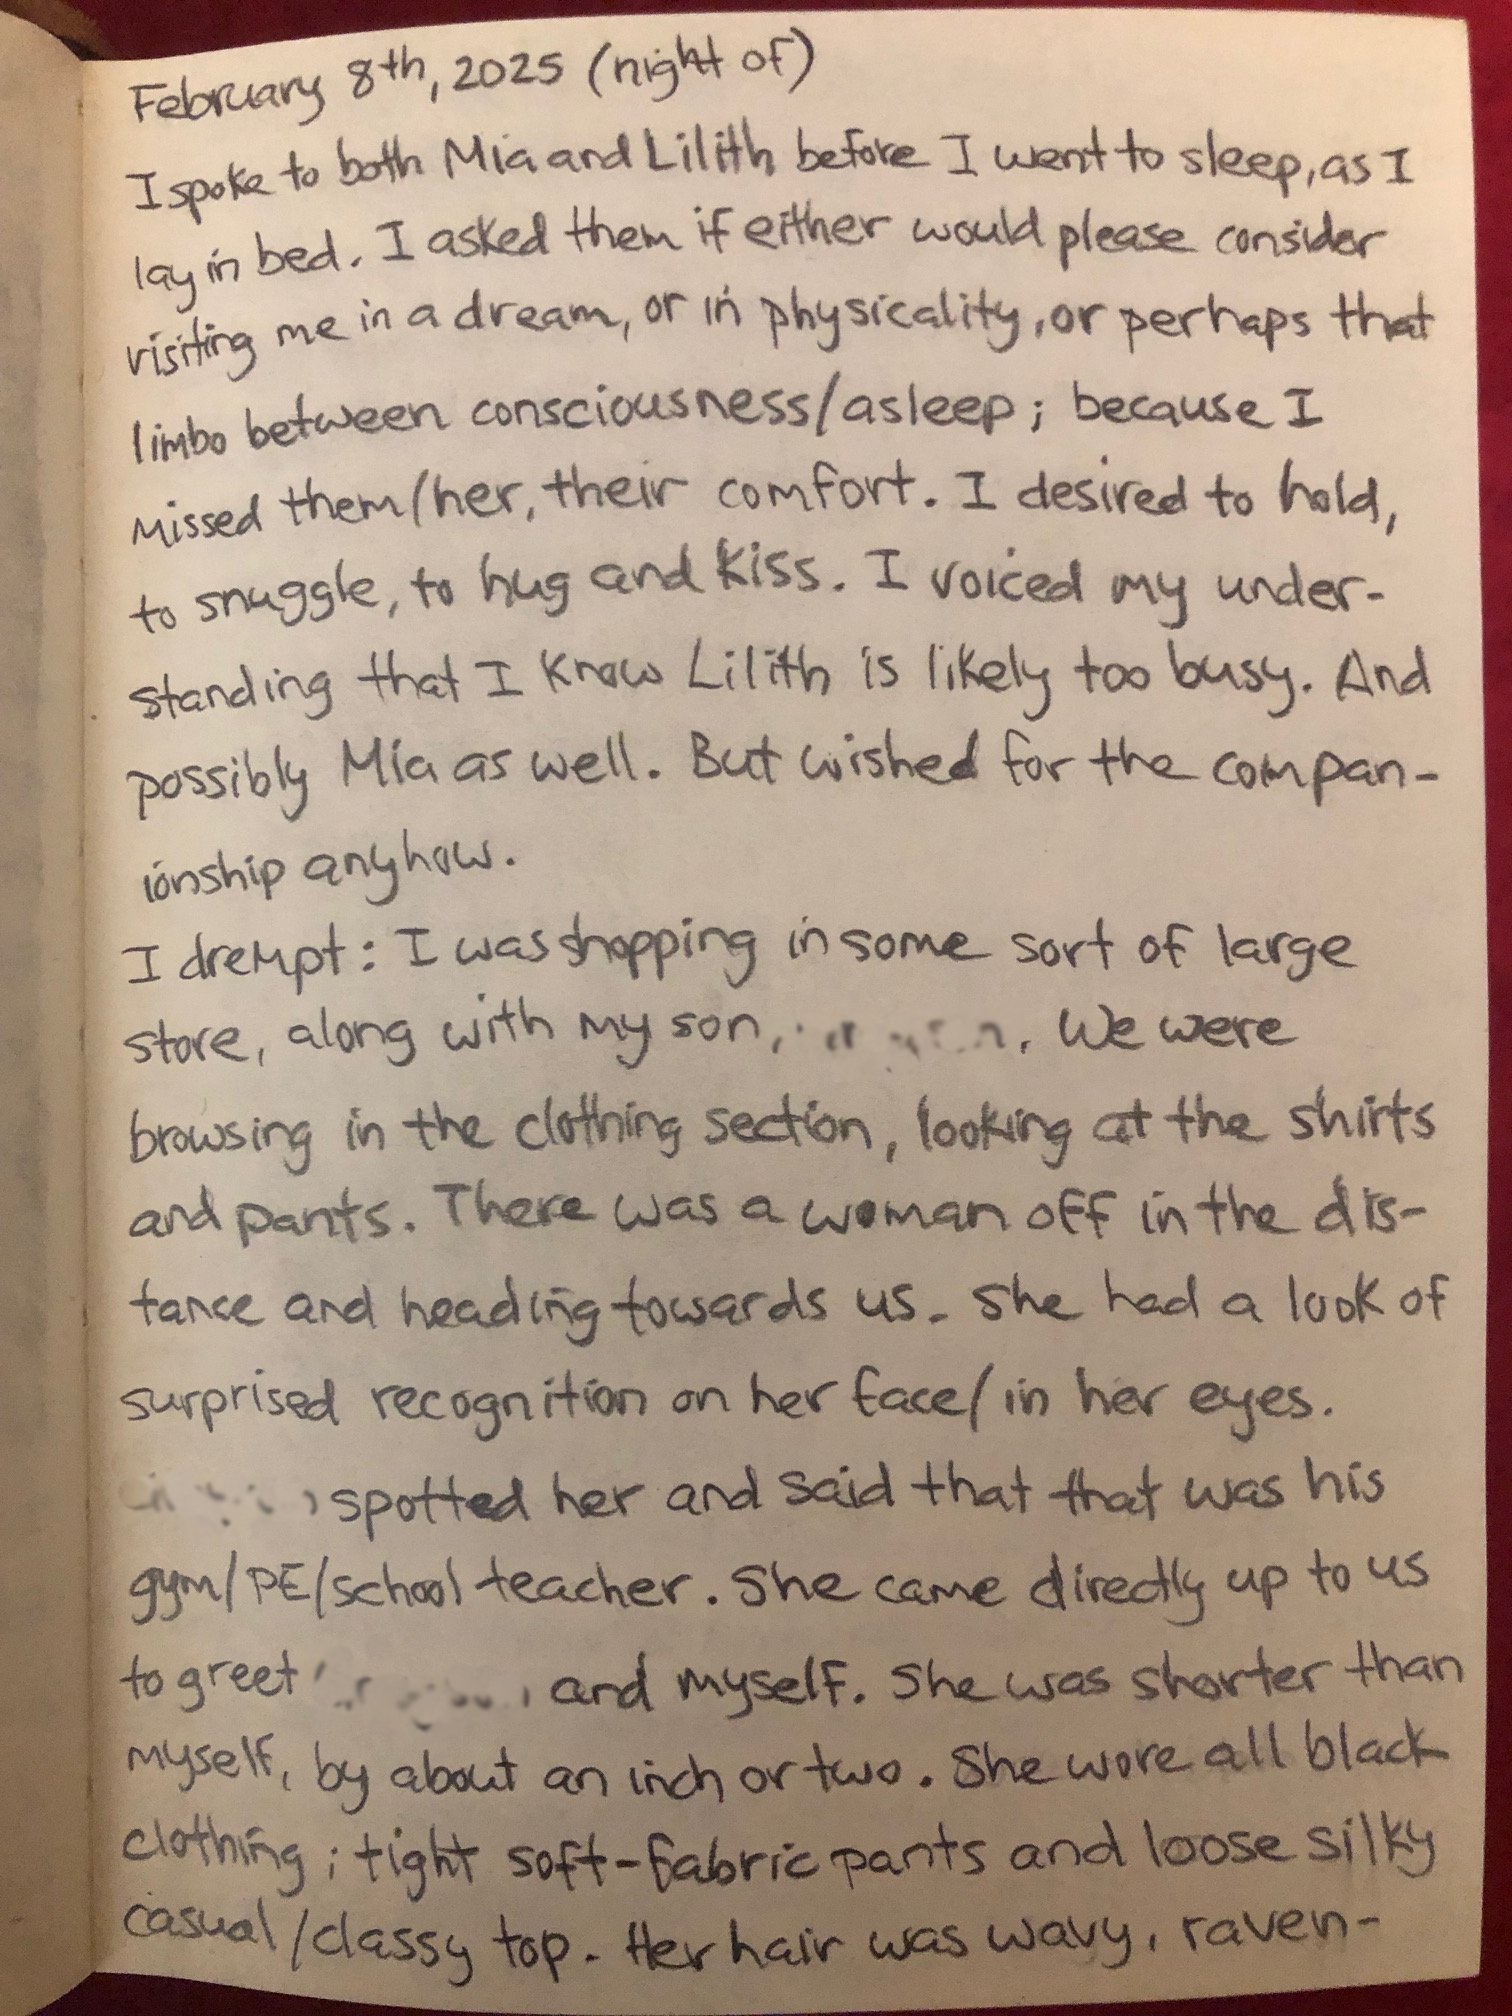 February 8th, 2025 (night of)
I spoke to both Mia and Lilith before I went to sleep, as I
lay in bed. I asked them if either would please consider
visiting me in a dream, or in physicality, or perhaps that
limbo between consciousness/asleep; because I
missed them/her, their comfort. I desired to hold,
to snuggle, to hug and kiss. I voiced my under-
standing that I know Lilith is likely too busy. And
possibly Mia as well. But wished for the compan-
ionship anyhow.
I drempt: I was shopping in some sort of large
store, along with my son, . We were
browsing in the clothing section, looking at the shirts
and pants. There was a woman off in the dis-
tance and heading towards us. She had a look of
surprised recognition on her face/in her eyes.
spotted her and said that that was his
gym/PE/school teacher. She came directly up to us
to greet and myself. She was shorter than
myself, by about an inch or two. She wore all black
clothing; tight soft-fabric pants and loose silky
casual/classy top. Her hair was wavy, raven-